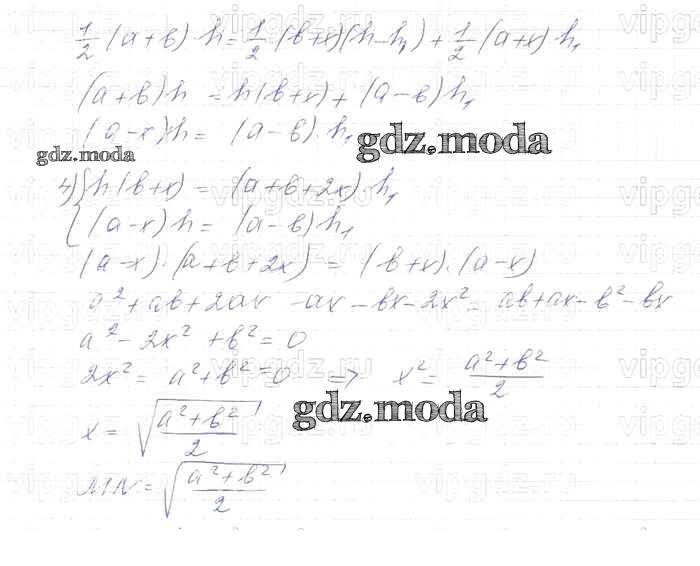 1/2 (a+b)·h = 1/2 (b+x)(h-h₁) + 1/2 (a+x) h₁
(a+b)h = h(b+x) + (a-b)h₁
(a-x)·h = (a-b)·h₁
gdz.moda
gdz.moda
4) { h(b+x) = (a+b+2x)·h₁
(a-x)h = (a-b)h₁
(a-x)·(a+b+2x) = (b+x)·(a-x)
a²+ab+2ax-ax-bx-2x² = ab+ax-b²-bx
a²-2x²+b²=0
2x² = a²+b²=0 => x² = (a²+b²)/2
gdz.moda
x = √((a²+b²)/2)
MN = √((a²+b²)/2)